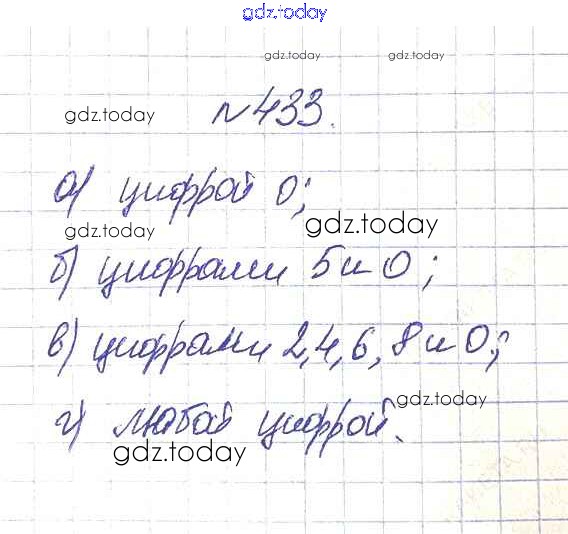 gdz.today
gdz.today gdz.today
gdz.today №433.
а) цифрой 0;
gdz.today gdz.today
б) цифрами 5 и 0;
в) цифрами 2, 4, 6, 8 и 0;
gdz.today
г) любой цифрой.
gdz.today